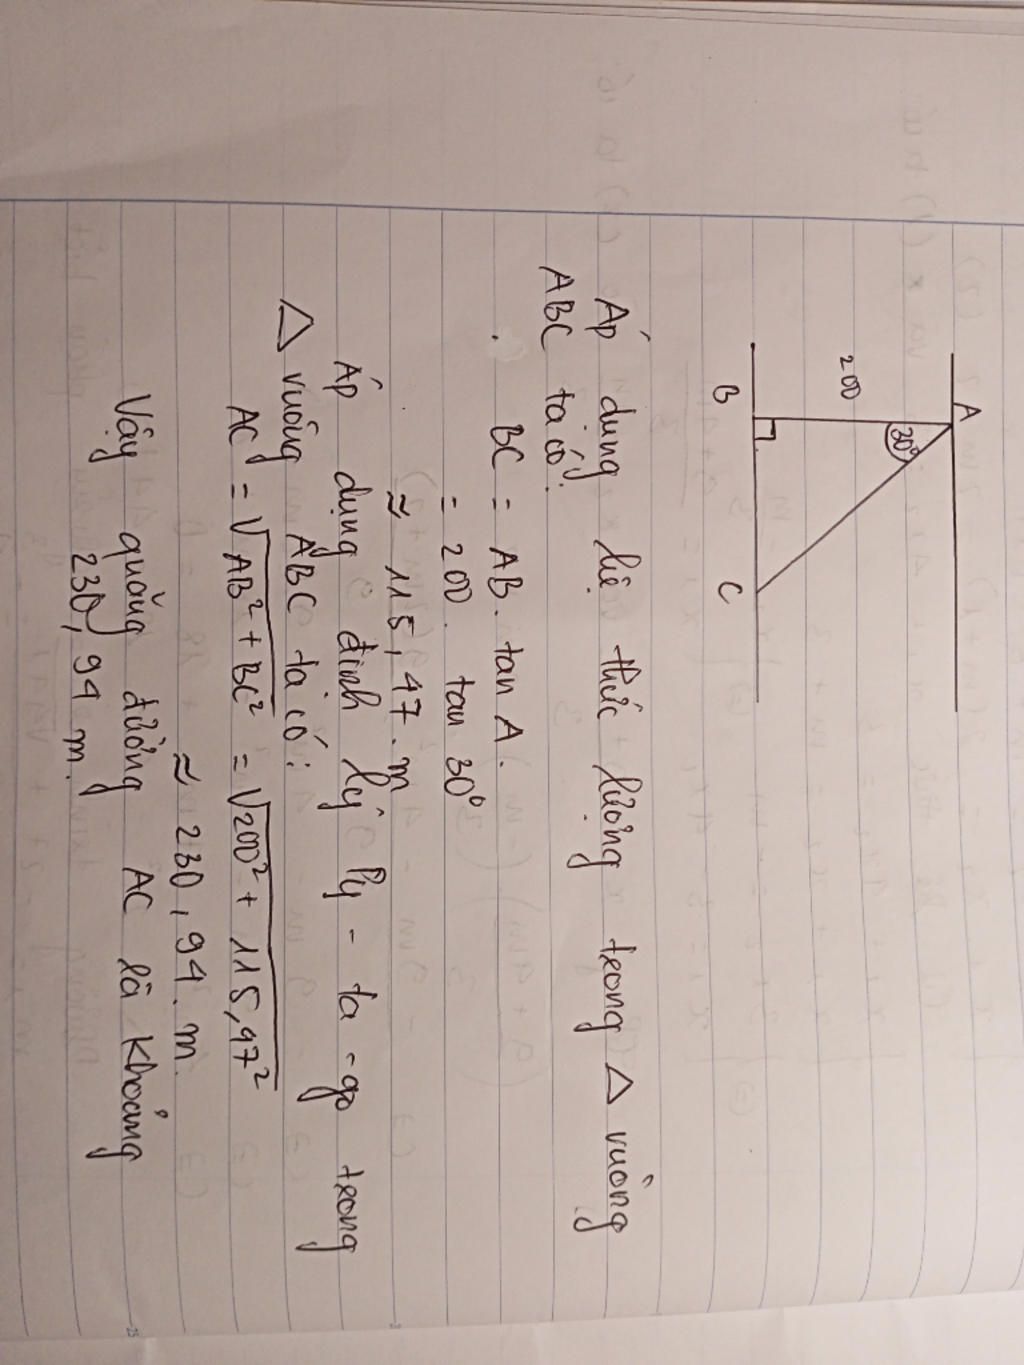 A
30°
200
B
C
Áp dụng hệ thức lượng trong △ vuông
ABC ta có:
BC = AB. tan A.
= 200. tan 30°
≈ 115,47. m
Áp dụng định lý Py-ta-go trong
△ vuông ABC ta có:
AC = √AB² + BC² = √200² + 115,47²
≈ 230,94. m.
Vậy quãng đường AC là khoảng
230,94 m.